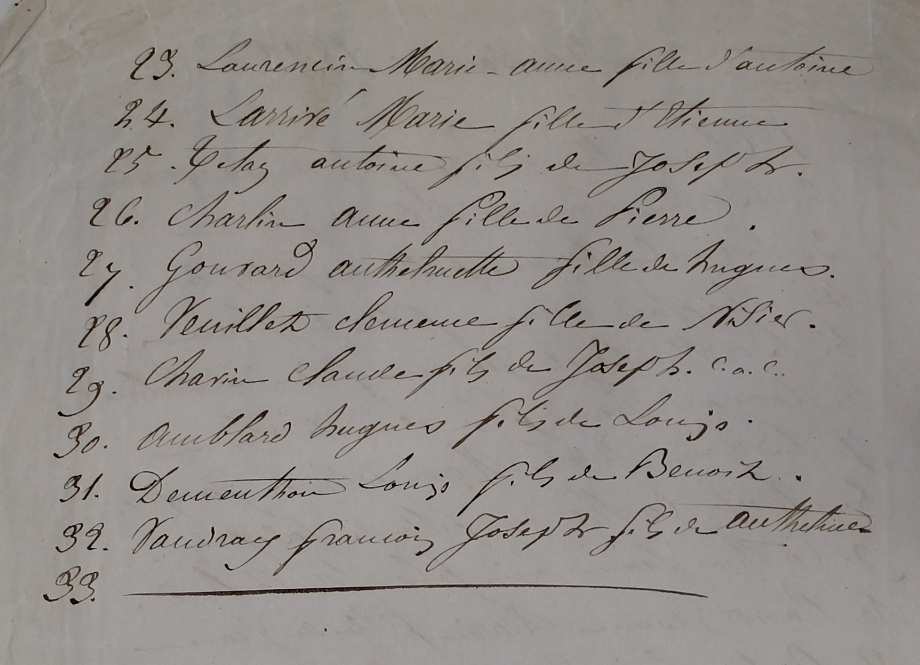 23. Laurencin Marie-anne fille d'antoine
24. Larrivé Marie fille d'Etienne
25. antoine fils de Joseph.
26. Charlin anne fille de Pierre.
27. Gouvard anthelmette fille de hugues.
28. Veuillet clemence fille de Nisier.
29. Charin claude fils de Joseph. C.a.C.
30. Amblard hugues fils de Louis.
31. Dementhon Louis fils de Benoit.
32. francois Joseph fils de anthelme
33.